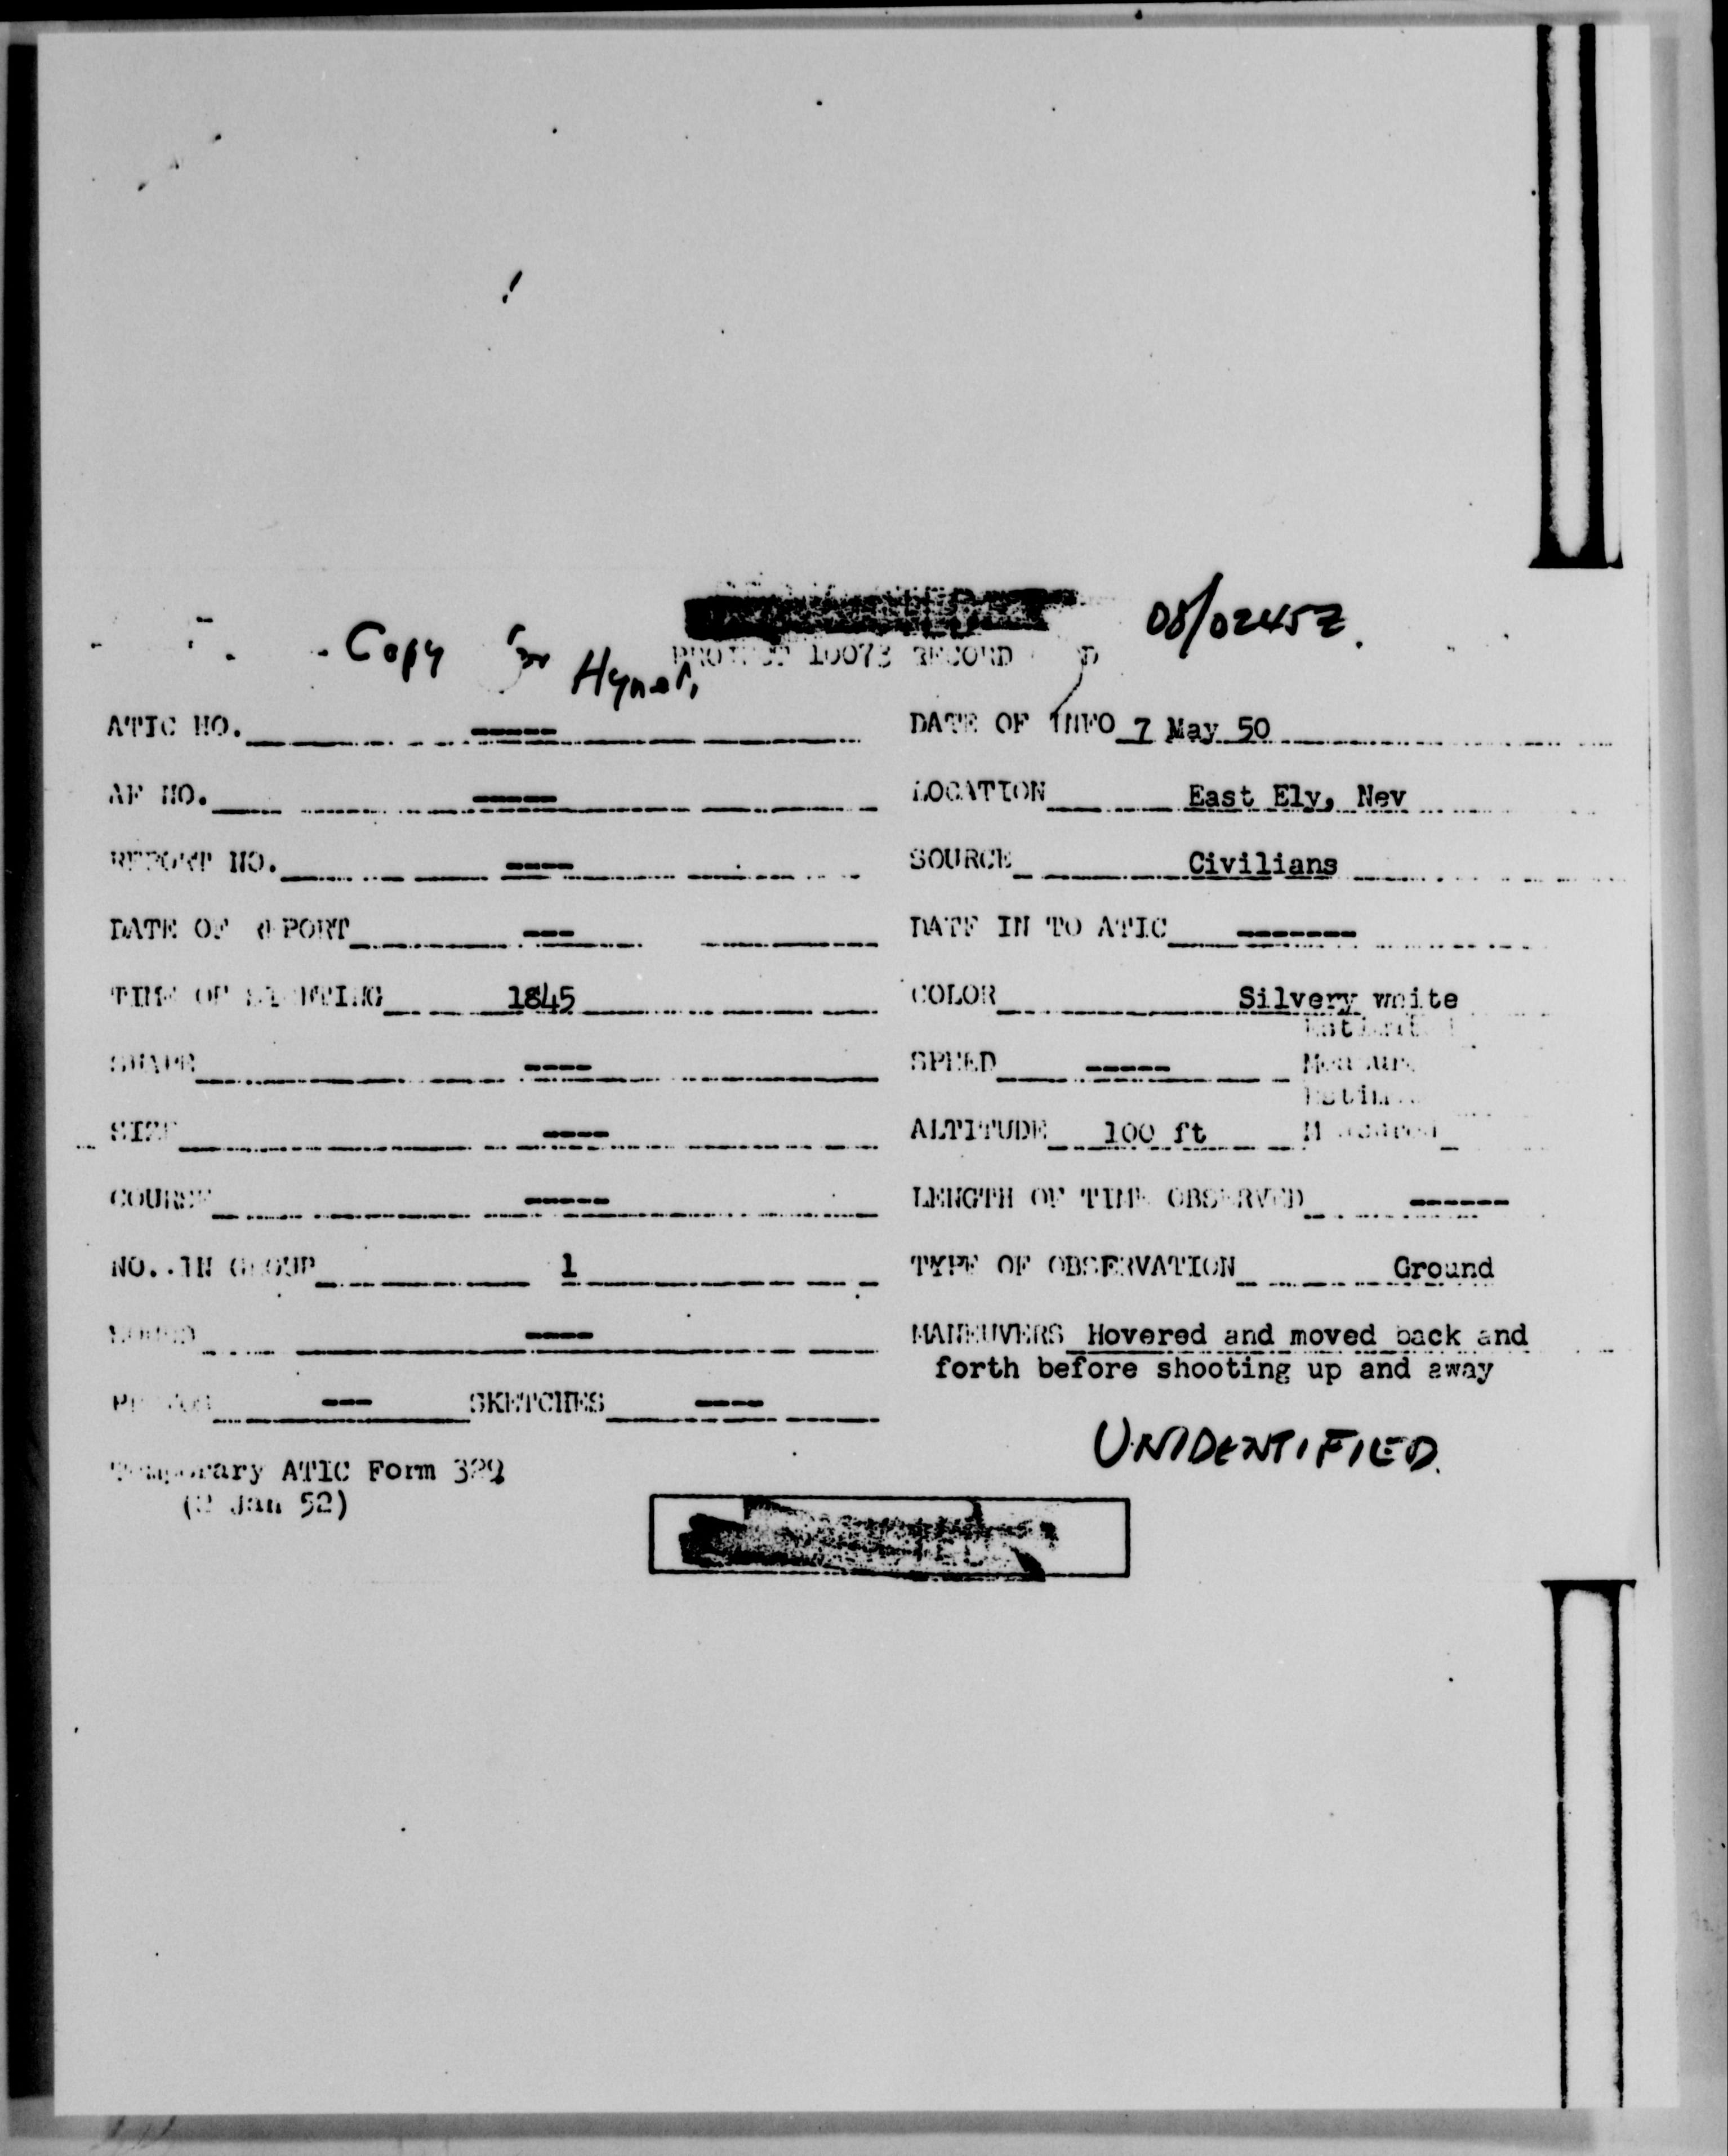 08/0245Z.
Copy for Hynek
PROJECT 10073 RECORD
ATIC NO. ----- DATE OF INFO 7 May 50
AF NO. ----- LOCATION East Ely, Nev
REPORT NO. ---- SOURCE Civilians
DATE OF REPORT --- DATE IN TO ATIC -------
TIME OF SIGHTING 1845 COLOR Silvery white
Estimated
SHAPE ---- SPEED ----- Measured
Estimated
SIZE ---- ALTITUDE 100 ft Measured
COURSE ----- LENGTH OF TIME OBSERVED ------
NO. IN GROUP 1 TYPE OF OBSERVATION Ground
SOUND ---- MANEUVERS Hovered and moved back and
forth before shooting up and away
PHOTOS --- SKETCHES ----
UNIDENTIFIED
Temporary ATIC Form 329
(2 Jan 52)